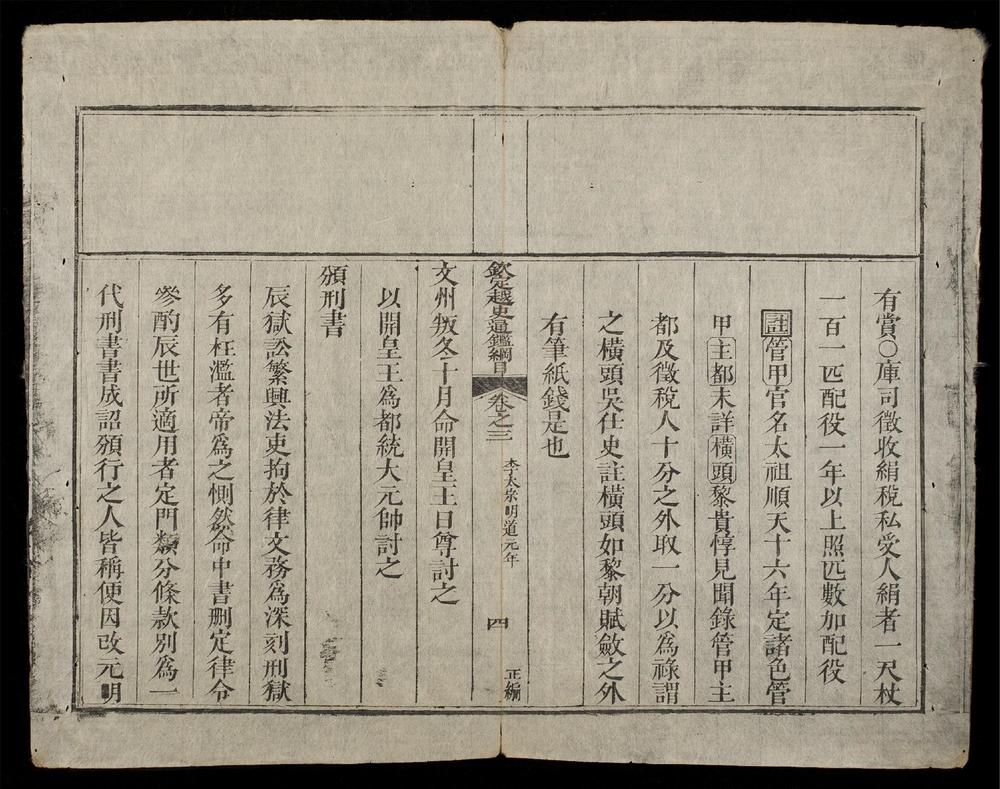 有賞○庫司徵收絹稅私受人絹者一尺杖
一百一匹配役一年以上照匹數加配役
註管甲官名太祖順天十六年定諸色管
甲主都未詳橫頭黎貴惇見聞錄管甲主
都及徵稅人十分之外取一分以爲祿謂
之橫頭吳仕史註橫頭如黎朝賦斂之外
有筆紙錢是也
欽定越史通鑑綱目 卷之三 李太宗明道元年 四 正編
文州叛冬十月命開皇王日尊討之
以開皇王爲都統大元帥討之
頒刑書
辰獄訟繁興法吏拘於律文務爲深刻刑獄
多有枉濫者帝爲之惻然命中書删定律令
參酌辰世所適用者定門類分條款別爲一
代刑書書成詔頒行之人皆稱便因改元明